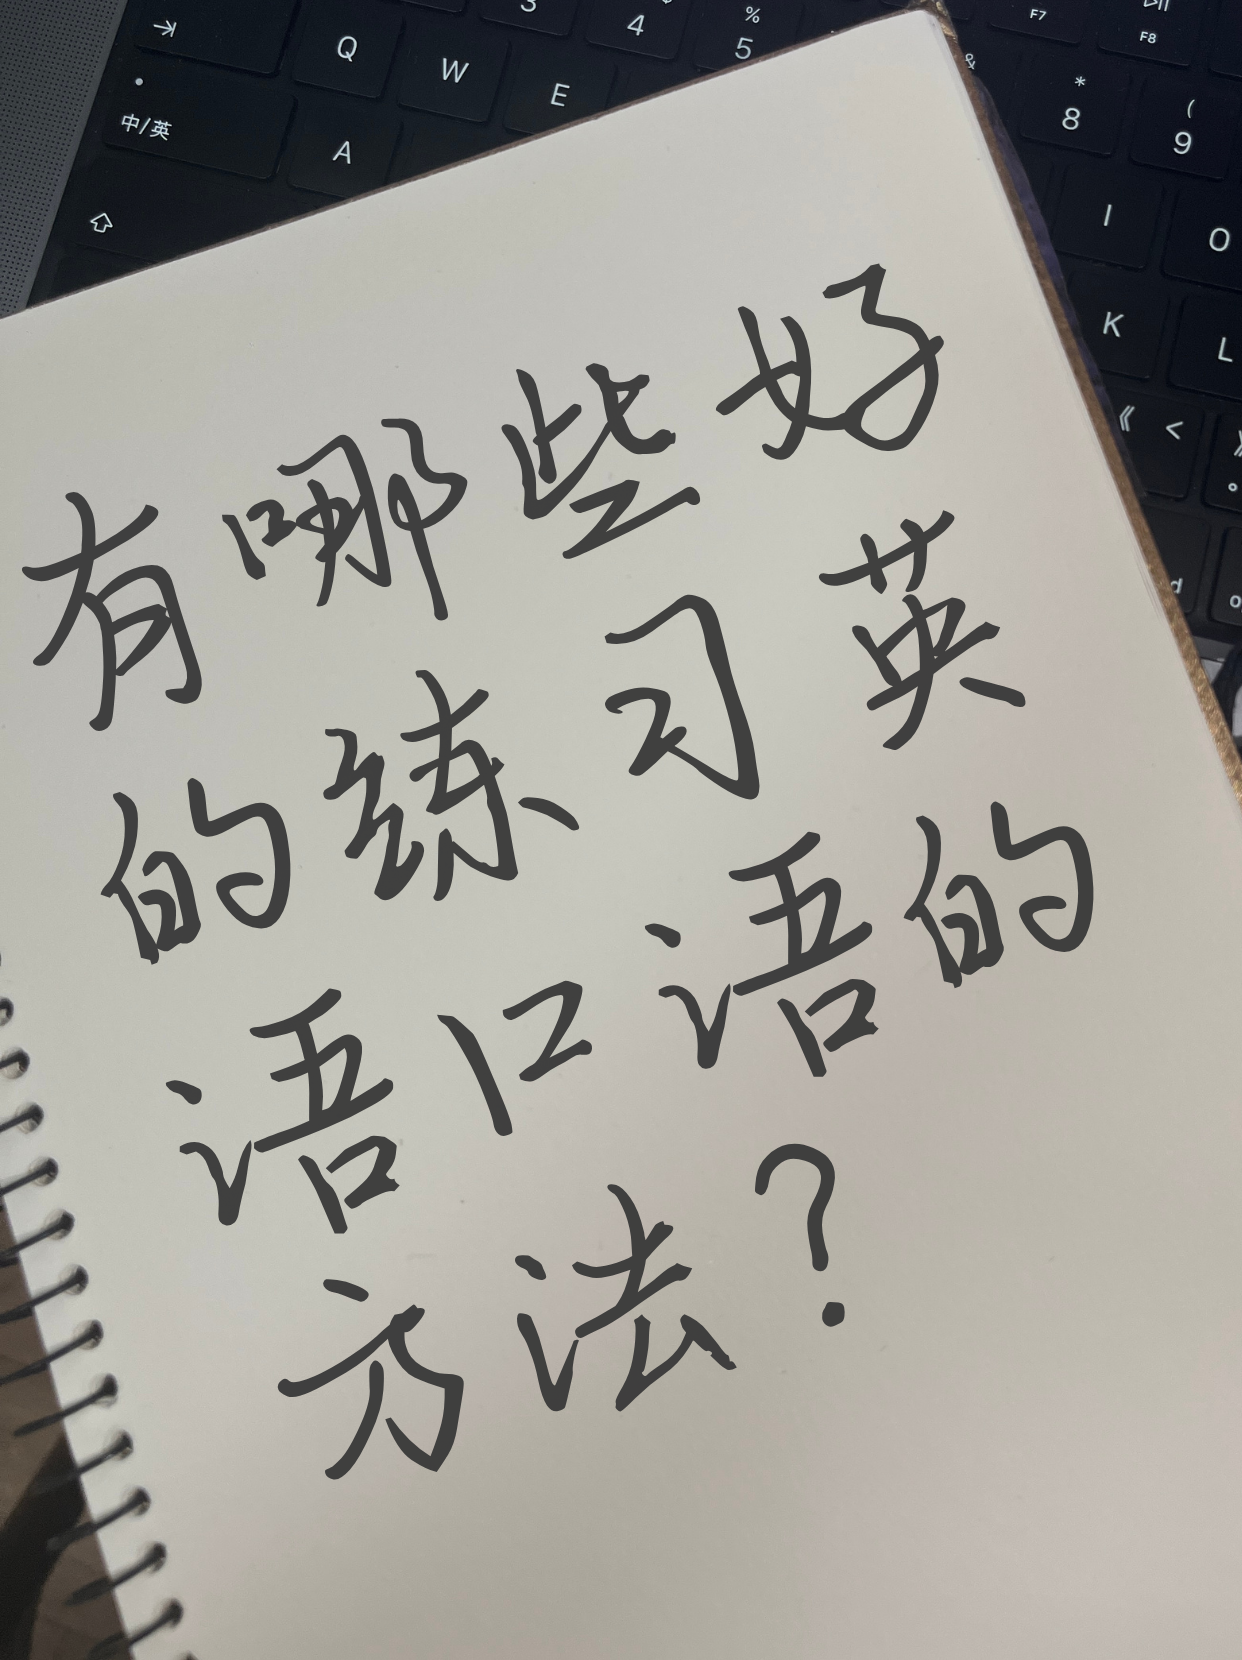 3
4
%
5
F7
F8
Q
W
E
&
*
8
(
9
中/英
A
I
O
K
L
《 <
》
。
d
有哪些好
的练习英
语口语的
方法?